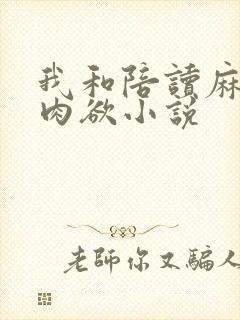 我和陪讀麻
肉欲小說
老師你又騙人